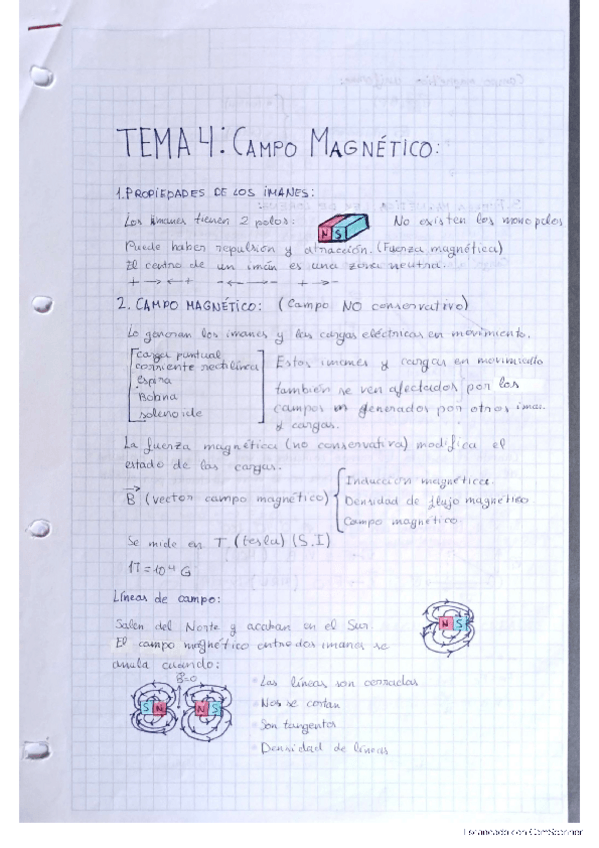 TEMA 4: CAMPO MAGNÉTICO:
1. PROPIEDADES DE LOS IMANES:
Los imanes tienen 2 polos: N S No existen los monopolos
Puede haber repulsión y atracción. (Fuerza magnética)
El centro de un imán es una zona neutra.
+ → ← + - ← → - + → -
2. CAMPO MAGNÉTICO: (Campo NO conservativo)
Lo generan los imanes y las cargas eléctricas en movimiento.
carga puntual
corriente rectilínea
Espira
Bobina
solenoide
Estos imanes y cargas en movimiento
también se ven afectados por los
campos m generados por otros iman.
y cargas.
La fuerza magnética (no conservativa) modifica el
estado de las cargas.
B (vector campo magnético)
Inducción magnética.
Densidad de flujo magnético
Campo magnético.
Se mide en T (tesla) (S.I)
1T = 10⁴ G
Líneas de campo:
Salen del Norte y acaban en el Sur.
N S
El campo magnético entre dos imanes se
anula cuando:
B=0
S N N S
• Las líneas son cerradas
• Nos se cortan
• Son tangentes
• Densidad de líneas
Escaneado con CamScanner